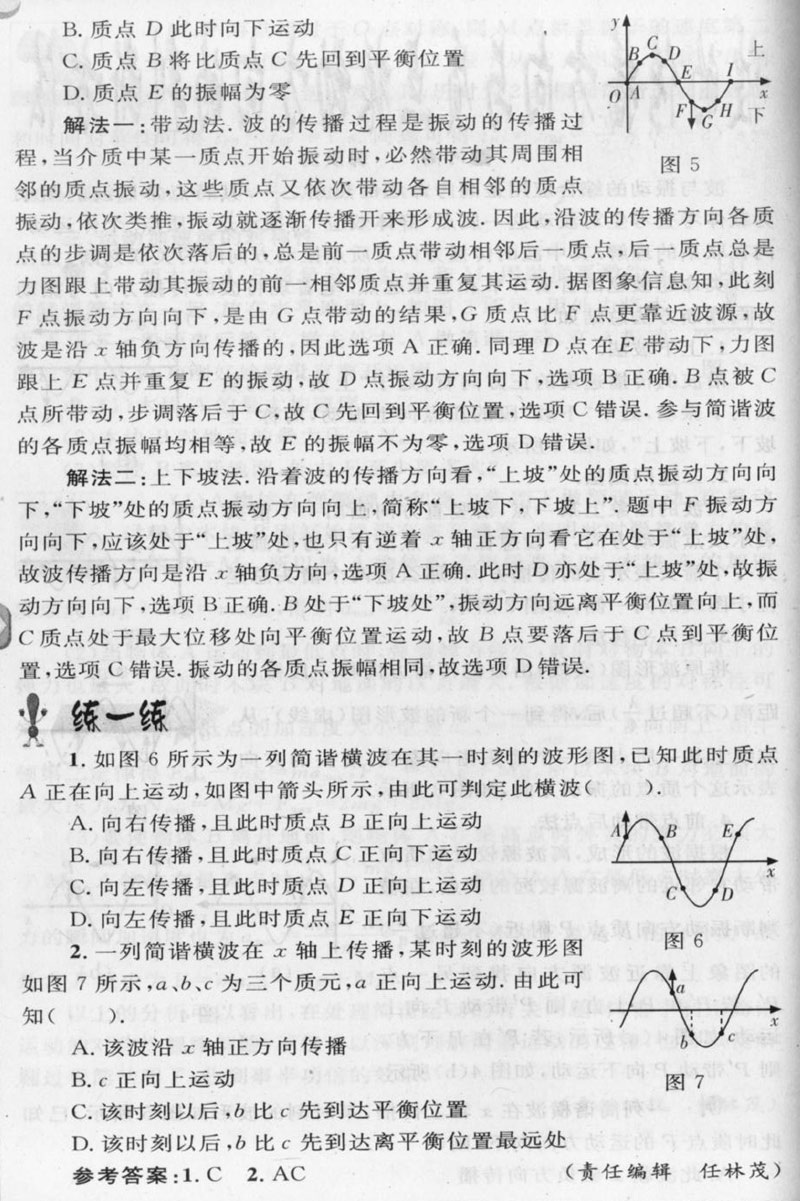 B. 质点 D 此时向下运动
C. 质点 B 将比质点 C 先回到平衡位置
D. 质点 E 的振幅为零
y
B C D
E
I
O A
F G H
x
上
下
图 5
解法一:带动法. 波的传播过程是振动的传播过
程,当介质中某一质点开始振动时,必然带动其周围相
邻的质点振动,这些质点又依次带动各自相邻的质点
振动,依次类推,振动就逐渐传播开来形成波. 因此,沿波的传播方向各质
点的步调是依次落后的,总是前一质点带动相邻后一质点,后一质点总是
力图跟上带动其振动的前一相邻质点并重复其运动. 据图象信息知,此刻
F 点振动方向向下,是由 G 点带动的结果,G 质点比 F 点更靠近波源,故
波是沿 x 轴负方向传播的,因此选项 A 正确. 同理 D 点在 E 带动下,力图
跟上 E 点并重复 E 的振动,故 D 点振动方向向下,选项 B 正确. B 点被 C
点所带动,步调落后于 C,故 C 先回到平衡位置,选项 C 错误. 参与简谐波
的各质点振幅均相等,故 E 的振幅不为零,选项 D 错误.
解法二:上下坡法. 沿着波的传播方向看,“上坡”处的质点振动方向向
下,“下坡”处的质点振动方向向上,简称“上坡下,下坡上”. 题中 F 振动方
向向下,应该处于“上坡”处,也只有逆着 x 轴正方向看它在处于“上坡”处,
故波传播方向是沿 x 轴负方向,选项 A 正确. 此时 D 亦处于“上坡”处,故振
动方向向下,选项 B 正确. B 处于“下坡处”,振动方向远离平衡位置向上,而
C 质点处于最大位移处向平衡位置运动,故 B 点要落后于 C 点到平衡位
置,选项 C 错误. 振动的各质点振幅相同,故选项 D 错误.
练一练
1. 如图 6 所示为一列简谐横波在其一时刻的波形图,已知此时质点
A 正在向上运动,如图中箭头所示,由此可判定此横波(　　).
A. 向右传播,且此时质点 B 正向上运动
B. 向右传播,且此时质点 C 正向下运动
C. 向左传播,且此时质点 D 正向上运动
D. 向左传播,且此时质点 E 正向下运动
A B E
x
C D
图 6
2. 一列简谐横波在 x 轴上传播,某时刻的波形图
如图 7 所示,a、b、c 为三个质元,a 正向上运动. 由此可
知(　　).
a
x
b c
图 7
A. 该波沿 x 轴正方向传播
B. c 正向上运动
C. 该时刻以后,b 比 c 先到达平衡位置
D. 该时刻以后,b 比 c 先到达离平衡位置最远处
参考答案:1. C　2. AC
(责任编辑　任林茂)